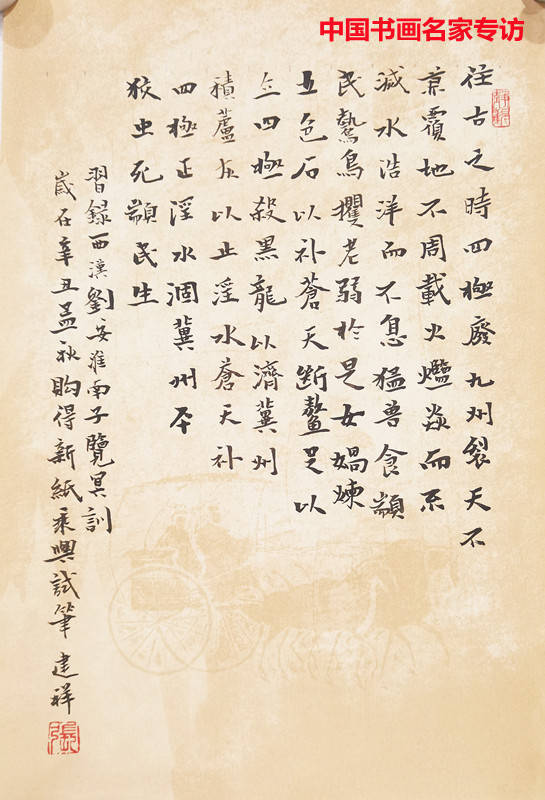 中国书画名家专访
往古之時四極廢九州裂天不
兼覆地不周載火爁焱而不
滅水浩洋而不息猛兽食顓
民鷙鳥攫老弱於是女媧煉
五色石以补蒼天断鳌足以
立四極殺黑龍以濟冀州
積蘆灰以止淫水蒼天补
四極正淫水涸冀州平
狡虫死顓民生
習録西漢劉安淮南子覽冥訓
歲在辛丑孟秋購得新紙乘興試筆 建祥
張